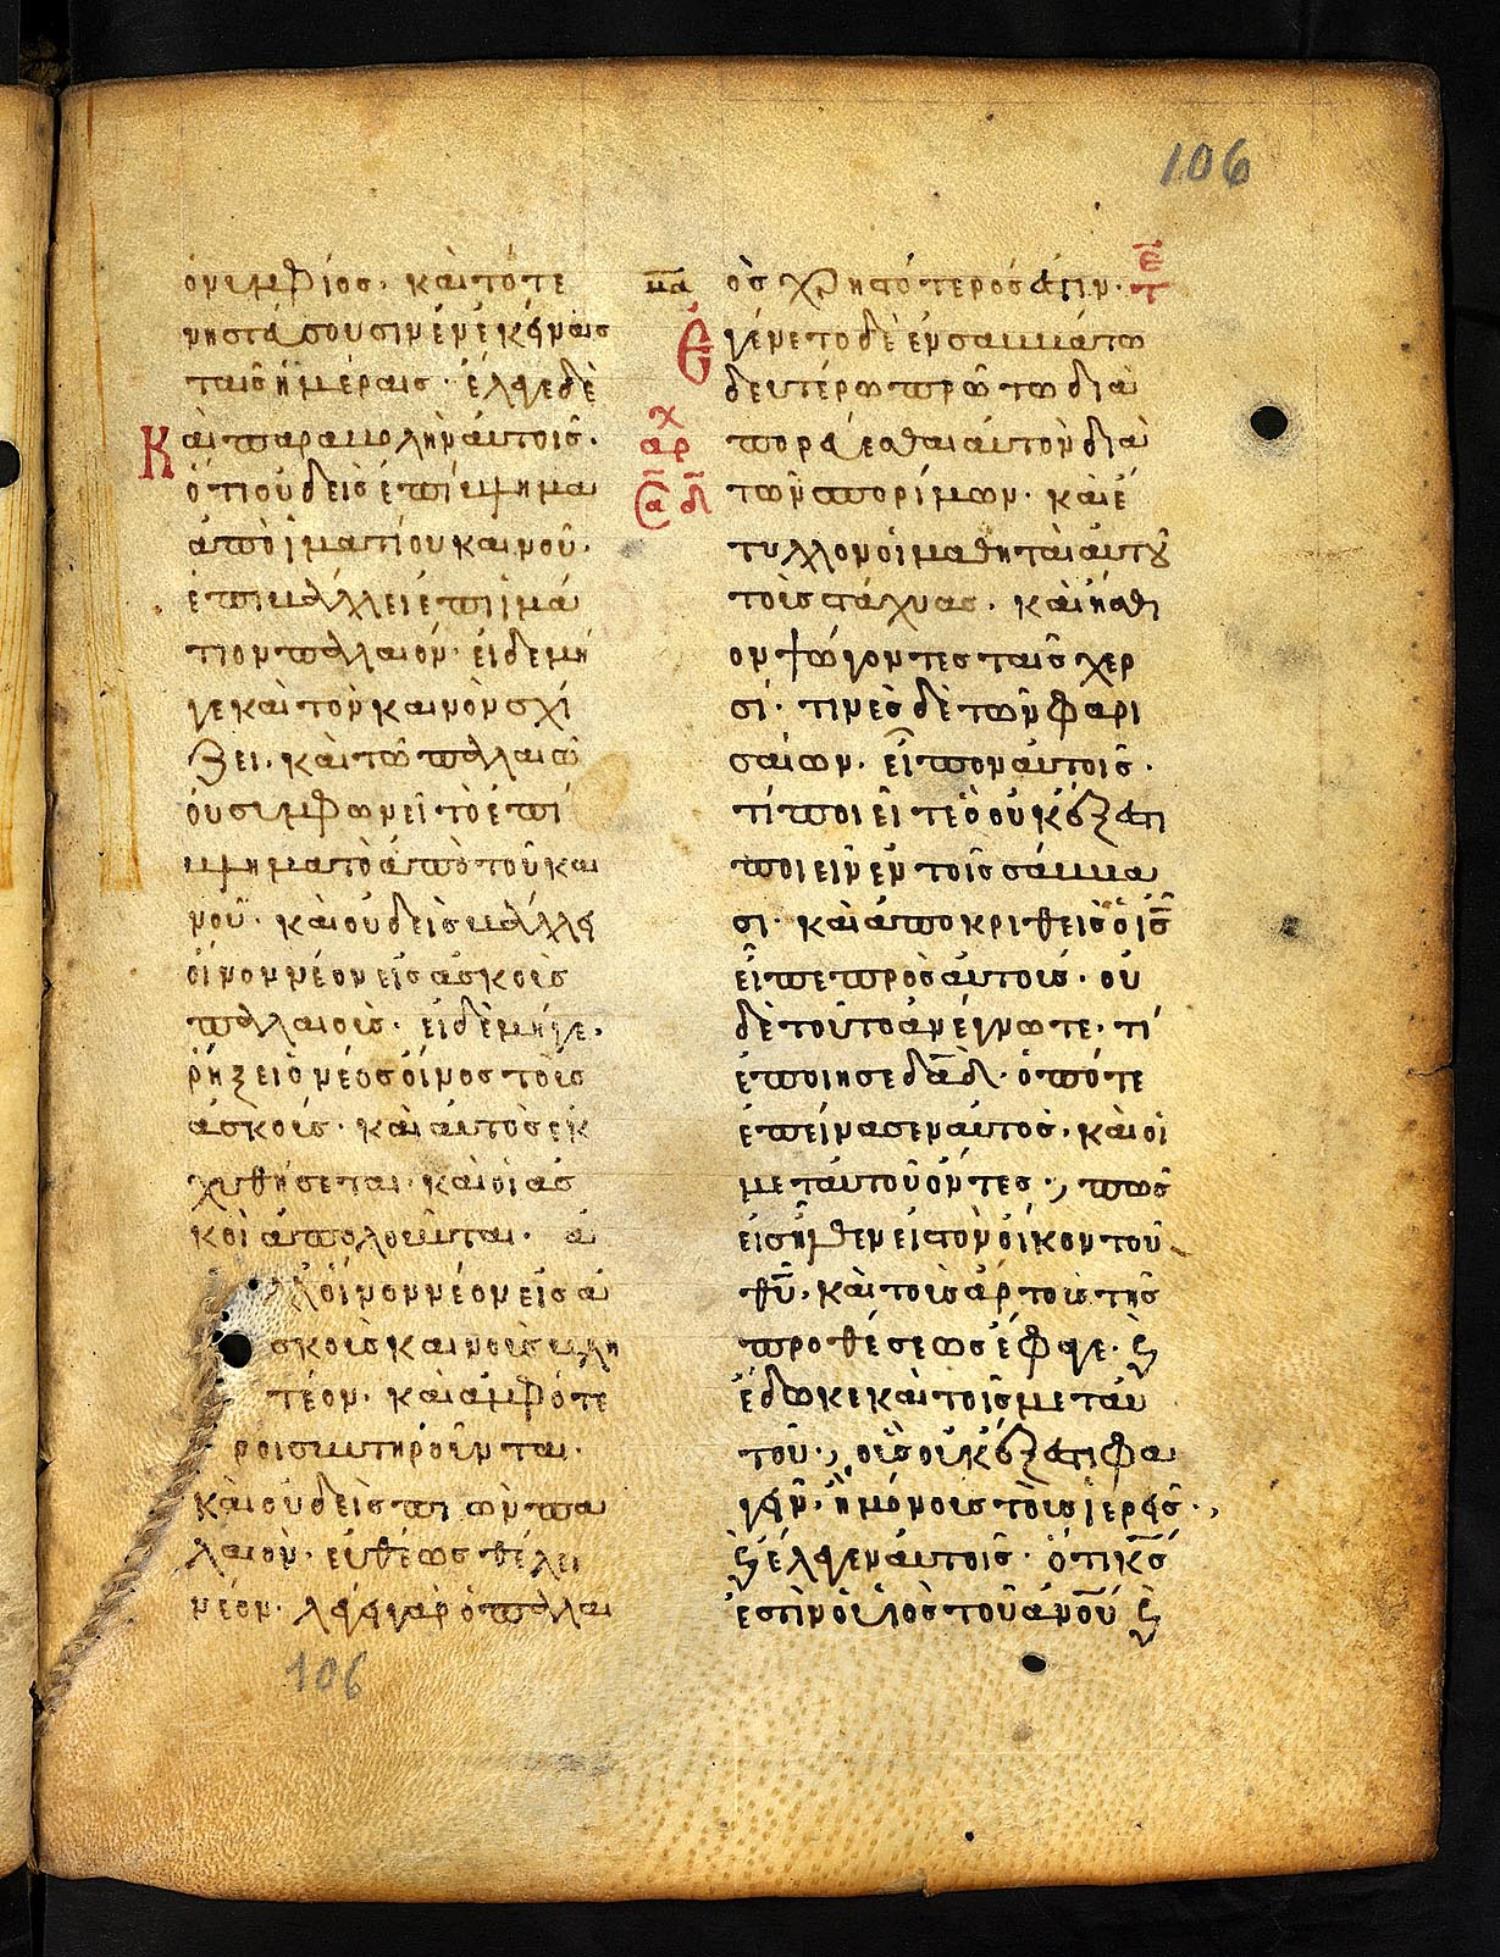 106
ὁνυμφίος· καὶ τότε
νηστεύσουσιν ἐν ἐκείναις
ταῖς ἡμέραις· ἔλεγε δὲ
Καὶ παραβολὴν αὐτοῖς·
ὅτι οὐδεὶς ἐπίβλημα
ἀπὸ ἱματίου καινοῦ·
ἐπιβάλλει ἐπὶ ἱμά
τιον παλαιόν· εἰ δὲ μή
γε καὶ τὸ καινὸν σχί
ζει· καὶ τῶ παλαιῶ
οὐ συμφωνεῖ τὸ ἐπί
βλημα τὸ ἀπὸ τοῦ και
νοῦ· καὶ οὐδεὶς βάλλει
οἶνον νέον εἰς ἀσκοὺς
παλαιούς· εἰ δὲ μήγε·
ῥήξει ὁ νέος οἶνος τοὺς
ἀσκούς· καὶ αὐτὸς ἐκ
χυθήσεται· καὶ οἱ ἀσ
κοὶ ἀπολοῦνται· ἀ
λλ' οἶνον νέον εἰς ἀ
σκοὺς καινοὺς βλη
τέον· καὶ ἀμφότε
ροι συντηροῦνται·
καὶ οὐδεὶς πιὼν πα
λαιὸν· εὐθέως θέλει
νέον· λέγει γὰρ ὁ παλαι
106
μα
χ
αρ
Ϲα δ
ε
τ
ὸς χρηστότερός ἐστιν·
Ἐγένετο δὲ ἐν σαββάτω
δευτέρω πρώτω δια
πορεύεσθαι αὐτὸν διὰ
τῶν σπορίμων· καὶ ἔ
τυλλον οἱ μαθηταὶ αὐτοῦ
τοὺς στάχυας· καὶ ἤσθι
ον ψώχοντες ταῖς χερ
σί· τινὲς δὲ τῶν φαρι
σαίων· εἶπον αὐτοῖς·
τί ποιεῖτε ὃ οὐκ ἔξεστι
ποιεῖν ἐν τοῖς σάββα
σι· καὶ ἀποκριθεὶς ὁ ις
εἶπε πρὸς αὐτούς· οὐ
δὲ τοῦτο ἀνέγνωτε· τί
ἐποίησε δαδ· ὁπότε
ἐπείνασεν αὐτὸς· καὶ οἱ
μετ αὐτοῦ ὄντες·, πῶς
εἰσῆλθεν εἰς τὸν οἶκον τοῦ
θυ· καὶ τοὺς ἄρτους τῆς
προθέσεως ἔφαγε· ϛ
ἔδωκε καὶ τοῖς μετ αὐ
τοῦ·, οὓς οὐκ ἔξεστι φα
γεῖν· ἢ μόνοις τοῖς ἱερεῖς·,
ϛ ἔλεγεν αὐτοῖς· ὅτι κς
ἐστὶν ὁ υἱὸς τοῦ ανου ϛ